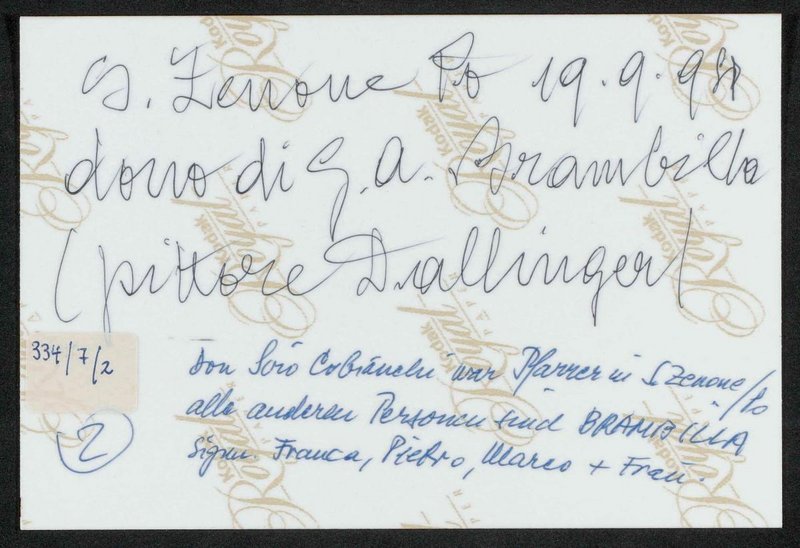 S. Zenone Po 19.9.98
dono di G. A. Brambilla
(pittore Drallinger)
334/7/2
Don Siro Cobianchi war Pfarrer in S Zenone/Po
alle anderen Personen sind BRAMBILLA
Franca, Pietro, Marco + Frau.
2
Kodak
Royal
PAPER